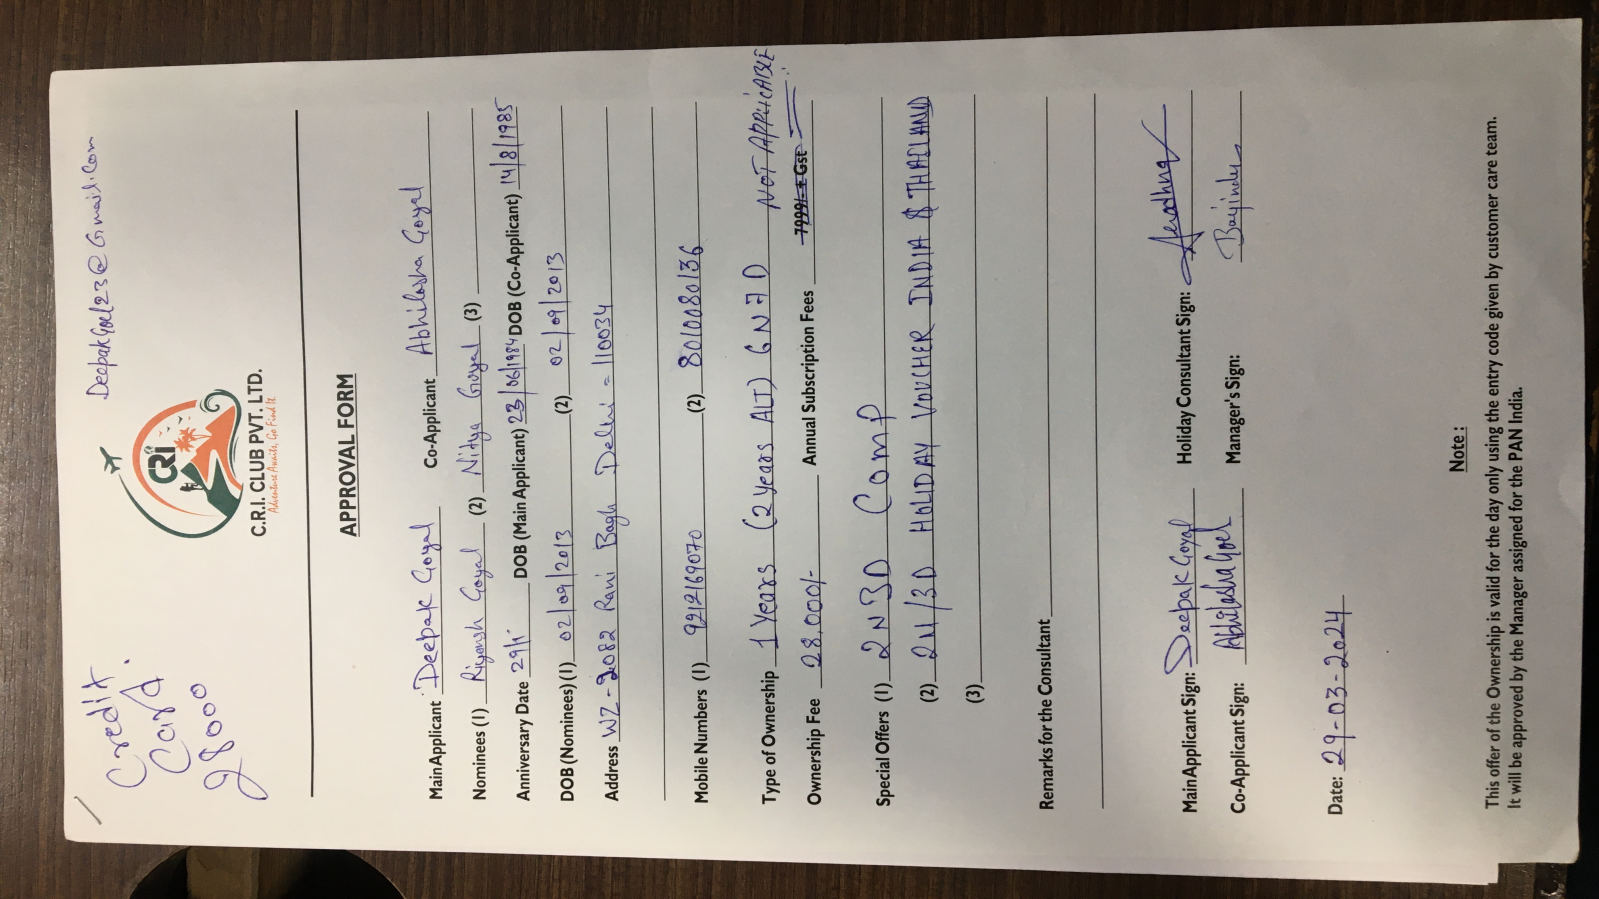 DeepakGoel23@Gmail.Com
Credit
Card.
28000
CRI
C.R.I. CLUB PVT. LTD.
Adventure Awaits, Go Find It
APPROVAL FORM
Main Applicant Deepak Goyal Co-Applicant Abhilasha Goyal
Nominees (1) Riyansh Goyal (2) Nitya Goyal (3)
Anniversary Date 29/1 DOB (Main Applicant) 23/06/1984 DOB (Co-Applicant) 14/8/1985
DOB (Nominees) (1) 02/09/2013 (2) 02/09/2013
Address WZ-2082 Rani Bagh Delhi - 110034
Mobile Numbers (1) 9212169070 (2) 8010080136
Type of Ownership 1 Years (2 Years ALT) 6N 7D NOT APPLICABLE
Ownership Fee 28,000/- Annual Subscription Fees 7999/- + Gst
Special Offers (1) 2N 3D Comp
(2) 2N/3D HOLIDAY VOUCHER INDIA & THAILAND
(3)
Remarks for the Consultant
Main Applicant Sign: Deepak Goyal Holiday Consultant Sign:
Co-Applicant Sign: Abhilasha Goel Manager's Sign:
Date: 29-03-2024
Note :
This offer of the Ownership is valid for the day only using the entry code given by customer care team.
It will be approved by the Manager assigned for the PAN India.